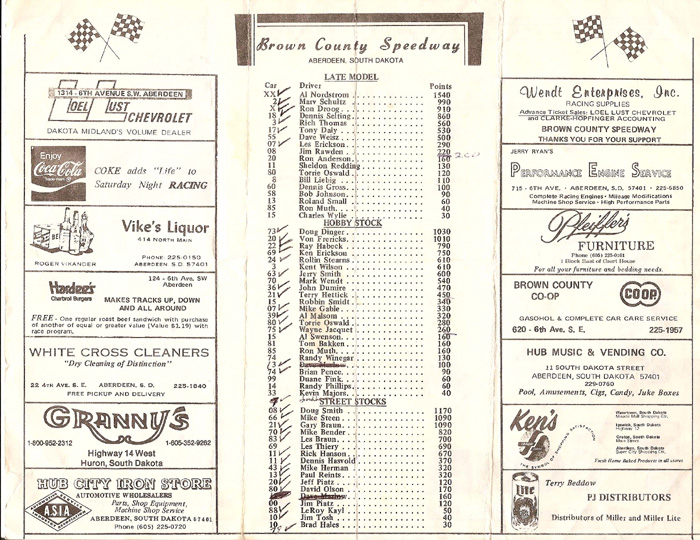 1314 - 6TH AVENUE S.W. ABERDEEN
JOEL LUST
CHEVROLET
DAKOTA MIDLAND'S VOLUME DEALER
Enjoy
Coca-Cola
COKE adds "Life" to
Saturday Night RACING
Vike's Liquor
414 NORTH MAIN
PHONE: 225-0150
ABERDEEN S.D. 57401
ROGER VIKANDER
Hardee's
Charbroil Burgers
124 - 6th Ave. SW
Aberdeen
MAKES TRACKS UP, DOWN
AND ALL AROUND
FREE - One regular roast beef sandwich with purchase
of another of equal or greater value (Value $1.19) with
race program.
WHITE CROSS CLEANERS
"Dry Cleaning of Distinction"
22 4TH AVE. S. E. ABERDEEN, S. D. 225-1840
FREE PICKUP AND DELIVERY
GRANNY'S
1-800-952-2312 1-605-352-9262
Highway 14 West
Huron, South Dakota
HUB CITY IRON STORE
AUTOMOTIVE WHOLESALERS
Parts, Shop Equipment,
Machine Shop Service
ABERDEEN, SOUTH DAKOTA 57401
Phone (605) 225-0720
A.S.I.A
Brown County Speedway
ABERDEEN, SOUTH DAKOTA
LATE MODEL
Car Driver Points
XX Al Nordstrom 1540
2 Marv Schultz 990
X Ron Droog 910
18 Dennis Selting 860
3 Rich Thomas 560
17 Tony Daly 530
55 Dave Weisz 500
07 Les Erickson 290
08 Jim Rawden 220
20 Ron Anderson 160
11 Sheldon Redding 130
80 Torrie Oswald 120
8 Bill Liebig 110
60 Dennis Gross 100
58 Bob Johnson 90
13 Roland Small 60
85 Ron Muth 40
15 Charles Wylie 30
HOBBY STOCK
73 Doug Dinger 1030
20 Von Frericks 1010
22 Ray Habeck 790
69 Ken Erickson 750
24 Rollin Stearns 610
3 Kent Wilson 610
63 Jerry Smith 600
70 Mark Wendt 540
36 John Dumire 470
21 Terry Hettick 450
15 Robbin Smidt 340
07 Mike Gable 330
39 Al Malsom 320
80 Torrie Oswald 280
75 Wayne Jacquet 260
15 Al Swenson 160
81 Tom Bakken 160
85 Ron Muth 160
74 Randy Winegar 130
100
74 Brian Pence 90
99 Duane Fink 60
14 Randy Phillips 60
33 Kevin Majors 40
STREET STOCKS
08 Doug Smith 1170
66 Mike Steen 1090
21 Gary Braun 1090
70 Mike Bender 820
83 Les Braun 700
69 Les Thiery 690
11 Rick Hanson 670
11 Dennis Hasvold 370
43 Mike Herman 320
13 Paul Reints 320
20 Jeff Piatz 120
80 David Olson 170
160
00 Jim Piatz 120
88 LeRoy Kayl 50
10 Jim Tosh 40
10 Brad Hales 30
Wendt Enterprises, Inc.
RACING SUPPLIES
Advance Ticket Sales: LOEL LUST CHEVROLET
and CLARKE-HOPFINGER ACCOUNTING
BROWN COUNTY SPEEDWAY
THANKS YOU FOR YOUR SUPPORT
JERRY RYAN'S
PERFORMANCE ENGINE SERVICE
715 - 6TH AVE. • ABERDEEN, S.D. • 225-6850
Complete Racing Engines • Mileage Modifications
Machine Shop Service • High Performance Parts
Pfeiffer's
FURNITURE
Phone (605) 225-0161
1 Block East of Court House
For all your furniture and bedding needs.
BROWN COUNTY
CO-OP
COOP
GASOHOL & COMPLETE CAR CARE SERVICE
620 - 6th Ave. S. E. 225-1957
HUB MUSIC & VENDING CO.
11 SOUTH DAKOTA STREET
ABERDEEN, SOUTH DAKOTA 57401
229-0760
Pool, Amusements, Cigt, Candy, Juke Boxes
Ken's
THE SYMBOL OF SHOPPING SATISFACTION
Ipswich, South Dakota
Highway 12
Groton, South Dakota
Main Street
Aberdeen, South Dakota
Super City Shopping Ctr.
Fresh Home Baked Products in all stores
Lite
Terry Beddow
PJ DISTRIBUTORS
Distributors of Miller and Miller Lite